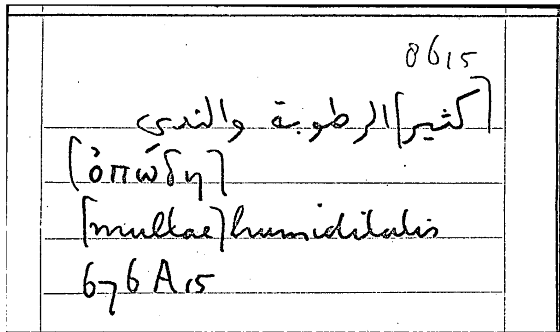 8615
[كثير] الرطوبة والندى
[ὀπώδη]
[multae] humiditatis
676 A 15